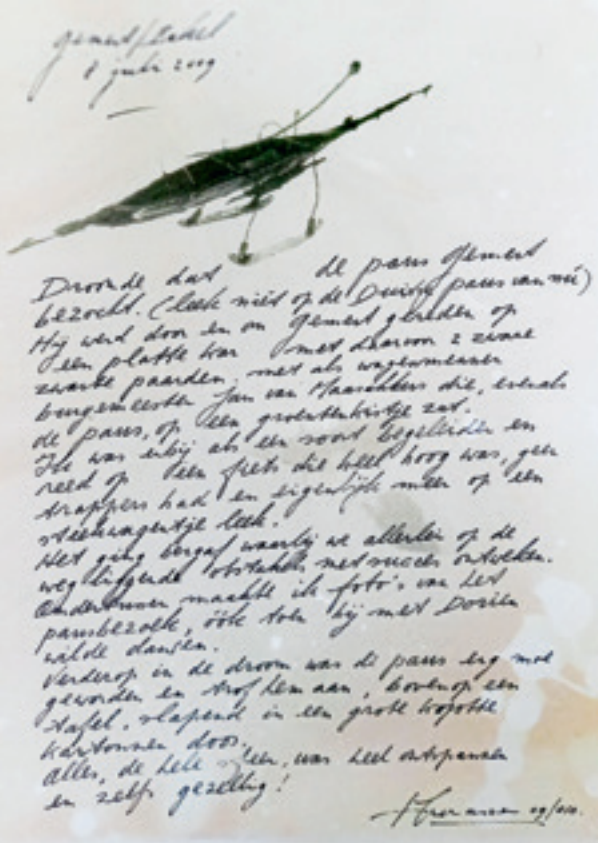 Gemert/Handel
8 juli 2009
Droomde dat de paus Gemert
bezocht. (leek niet op de Duitse paus van nú)
Hij werd door en om Gemert gereden op
een platte kar met daarvoor 2 zware
zwarte paarden, met als wagenmenner
burgemeester Jan van Maasakkers die, evenals
de paus, op een groentenkistje zat.
Ik was erbij als een soort begeleider en
reed op een fiets die heel hoog was, geen
trappers had en eigenlijk meer op een
steekwagentje leek.
Het ging bergaf waarbij we allerlei op de
weg liggende obstakels met succes ontweken.
Ondertussen maakte ik foto's van het
pausbezoek, óók toen hij met Dorien
wilde dansen.
Verderop in de droom was de paus erg moe
geworden en trof hem aan, bovenop een
tafel, slapend in een grote
kartonnen doos.
Alles, de hele sfeer, was heel ontspannen
en zelfs gezellig!